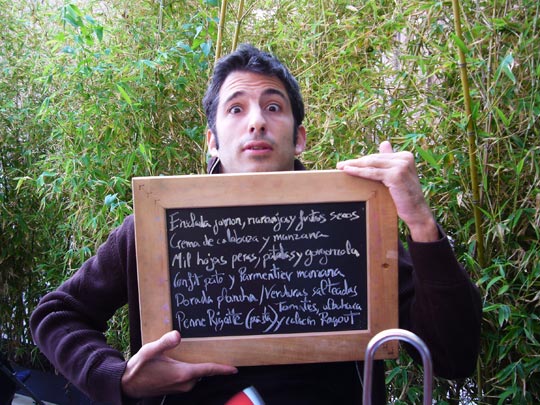 Ensalada jamon, naranja y frutos secos
Crema de calabaza y manzana
Mil hojas peras, patatas y gorgonzola
Confit pato y Parmentier manzana
Dorada plancha/Verduras salteadas
Penne Rigatte (pasta) Tomates,
calacin Ragout